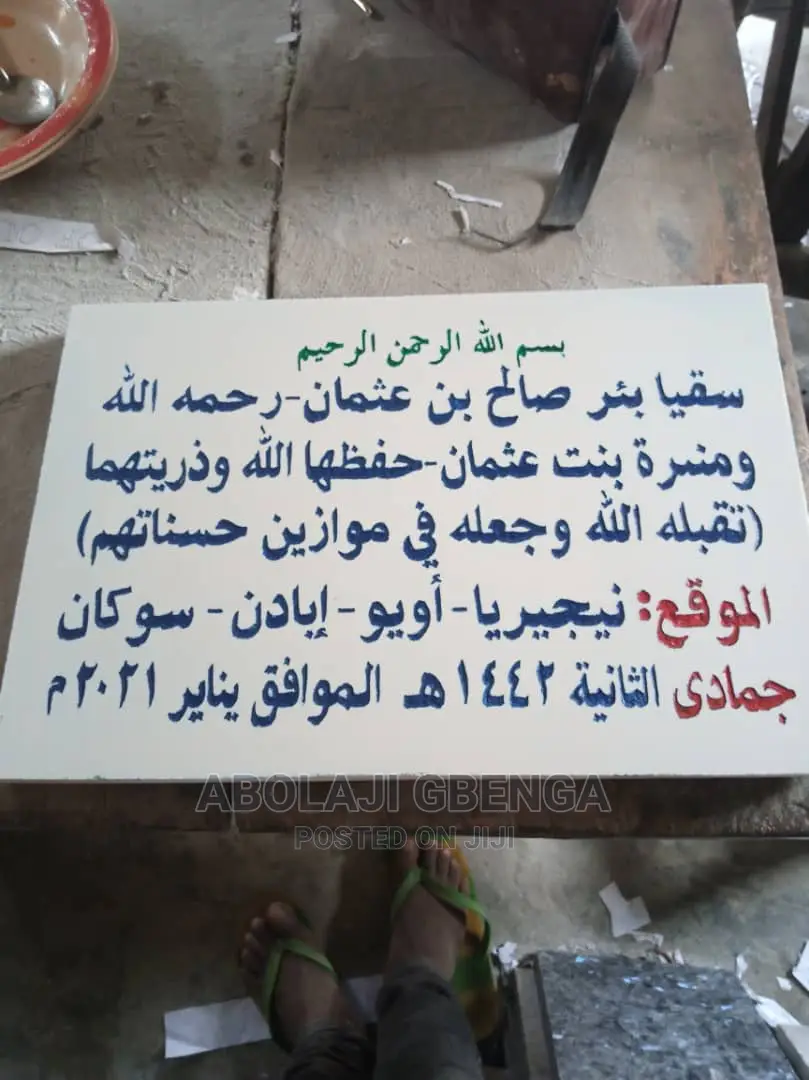 بسم الله الرحمن الرحيم
سقيا بئر صالح بن عثمان-رحمه الله
ومنيرة بنت عثمان-حفظها الله وذريتهما
(تقبله الله وجعله في موازين حسناتهم)
الموقع: نيجيريا-أويو-إبادن-سوكان
جمادى الثانية ١٤٤٢هـ الموافق يناير ٢٠٢١م
ABOLAJI GBENGA
POSTED ON JIJI